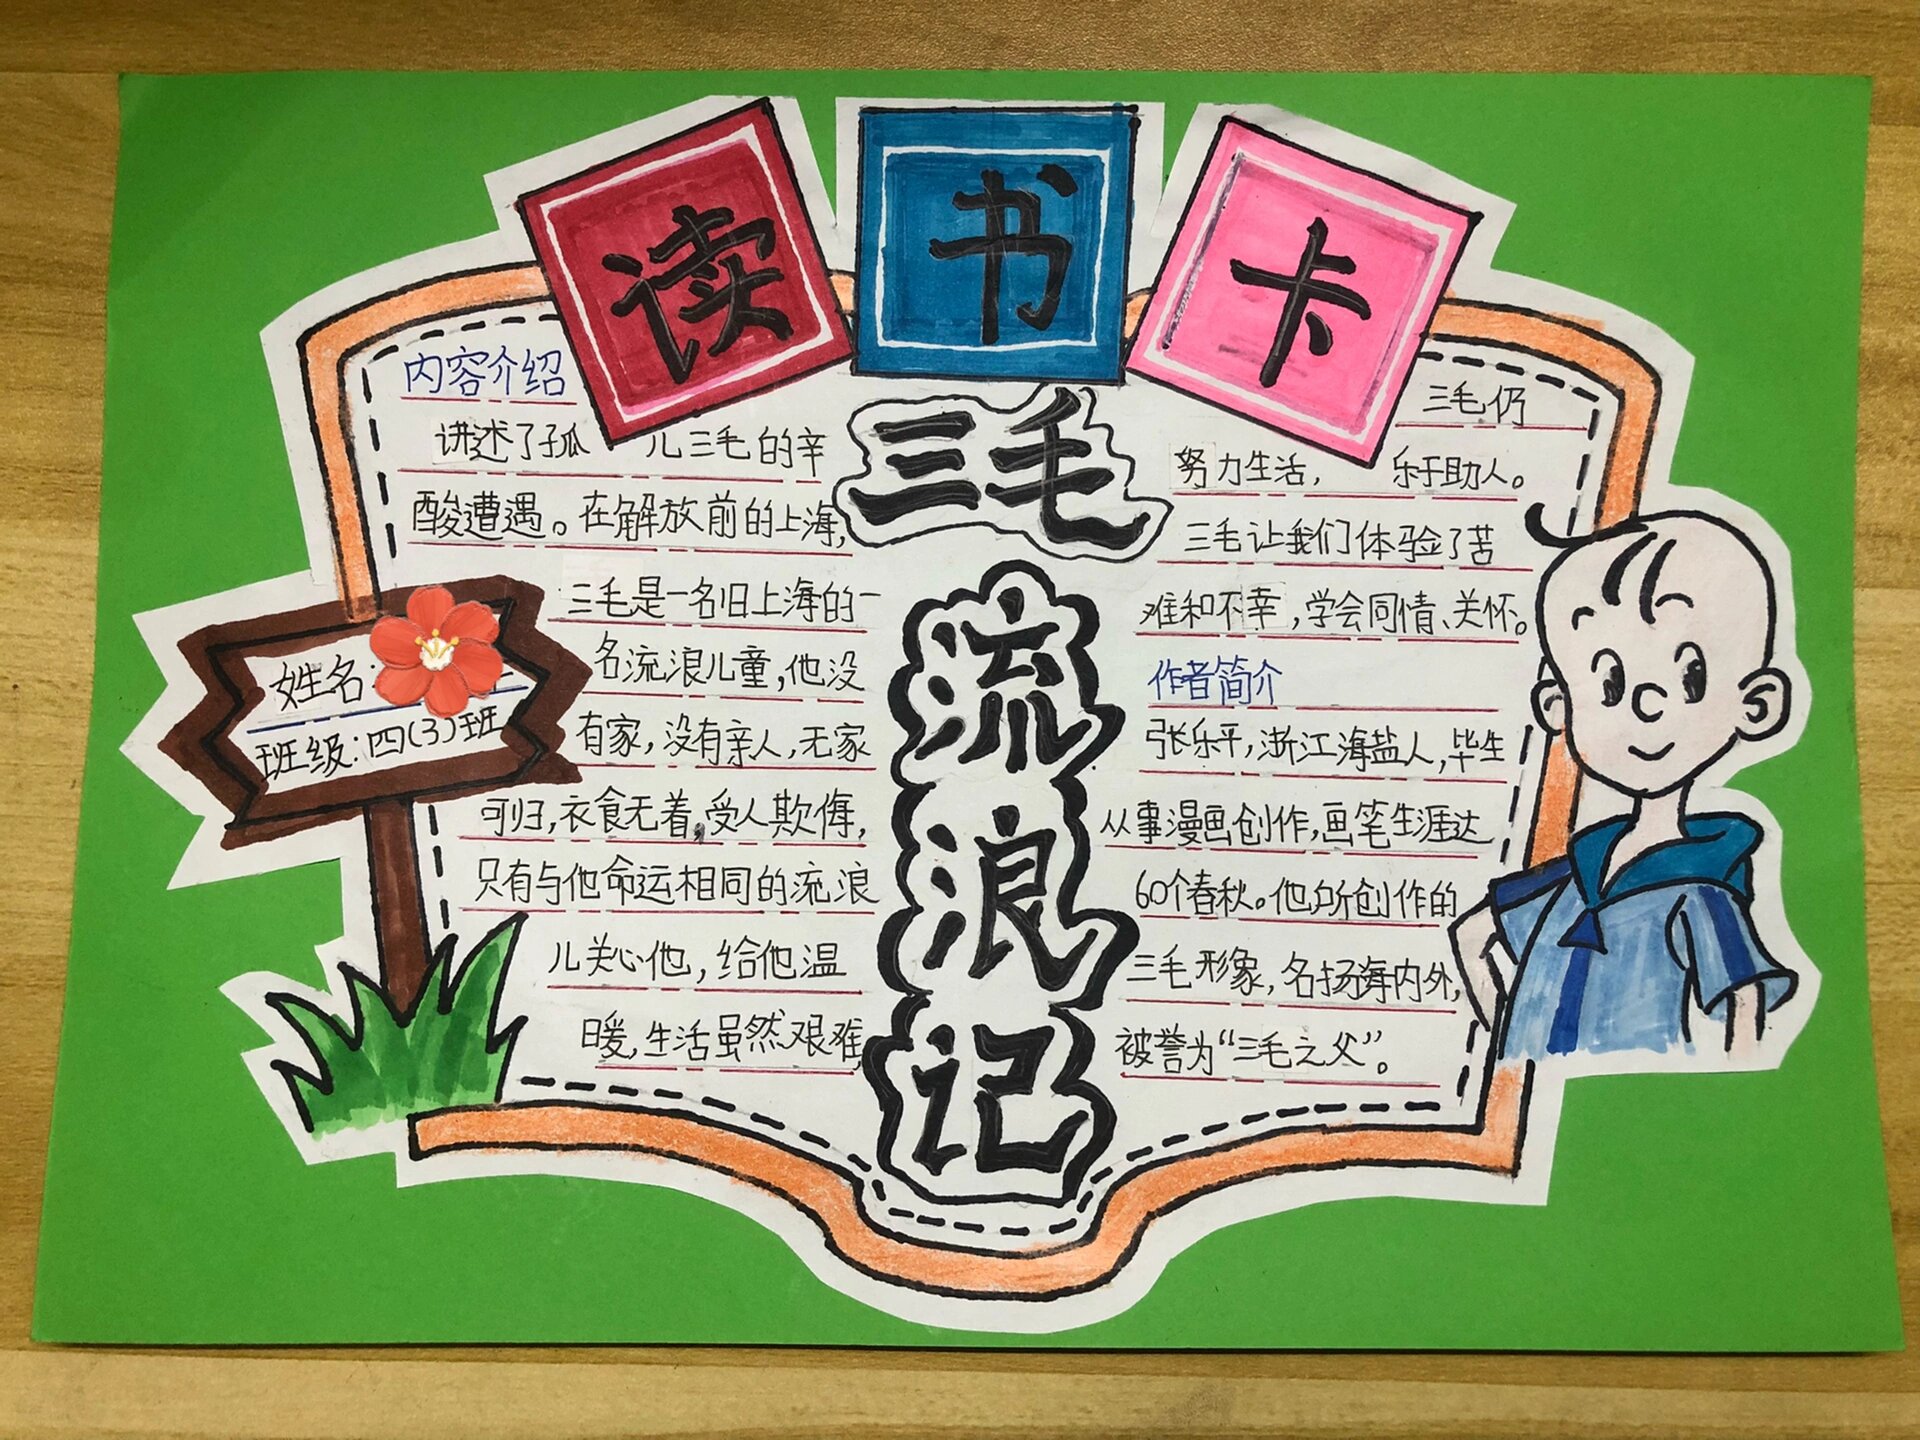 读书卡
三毛
流
浪
记
内容介绍
讲述了孤 儿三毛的辛
酸遭遇。在解放前的上海,
三毛是一名旧上海的一
名流浪儿童,他没
有家,没有亲人,无家
可归,衣食无着,受人欺侮,
只有与他命运相同的流浪
儿关心他,给他温
暖,生活虽然艰难,
三毛仍
努力生活, 乐于助人。
三毛让我们体验了苦
难和不幸,学会同情、关怀。
作者简介
张乐平,浙江海盐人,毕生
从事漫画创作,画笔生涯达
60个春秋。他所创作的
三毛形象,名扬海内外,
被誉为“三毛之父”。
姓名:
班级:四(3)班